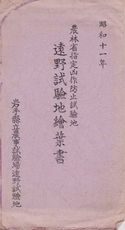 昭和十一年
農林省指定凶作防止試驗地
遠野試驗地繪葉書
岩手縣立農事試驗場遠野試驗地